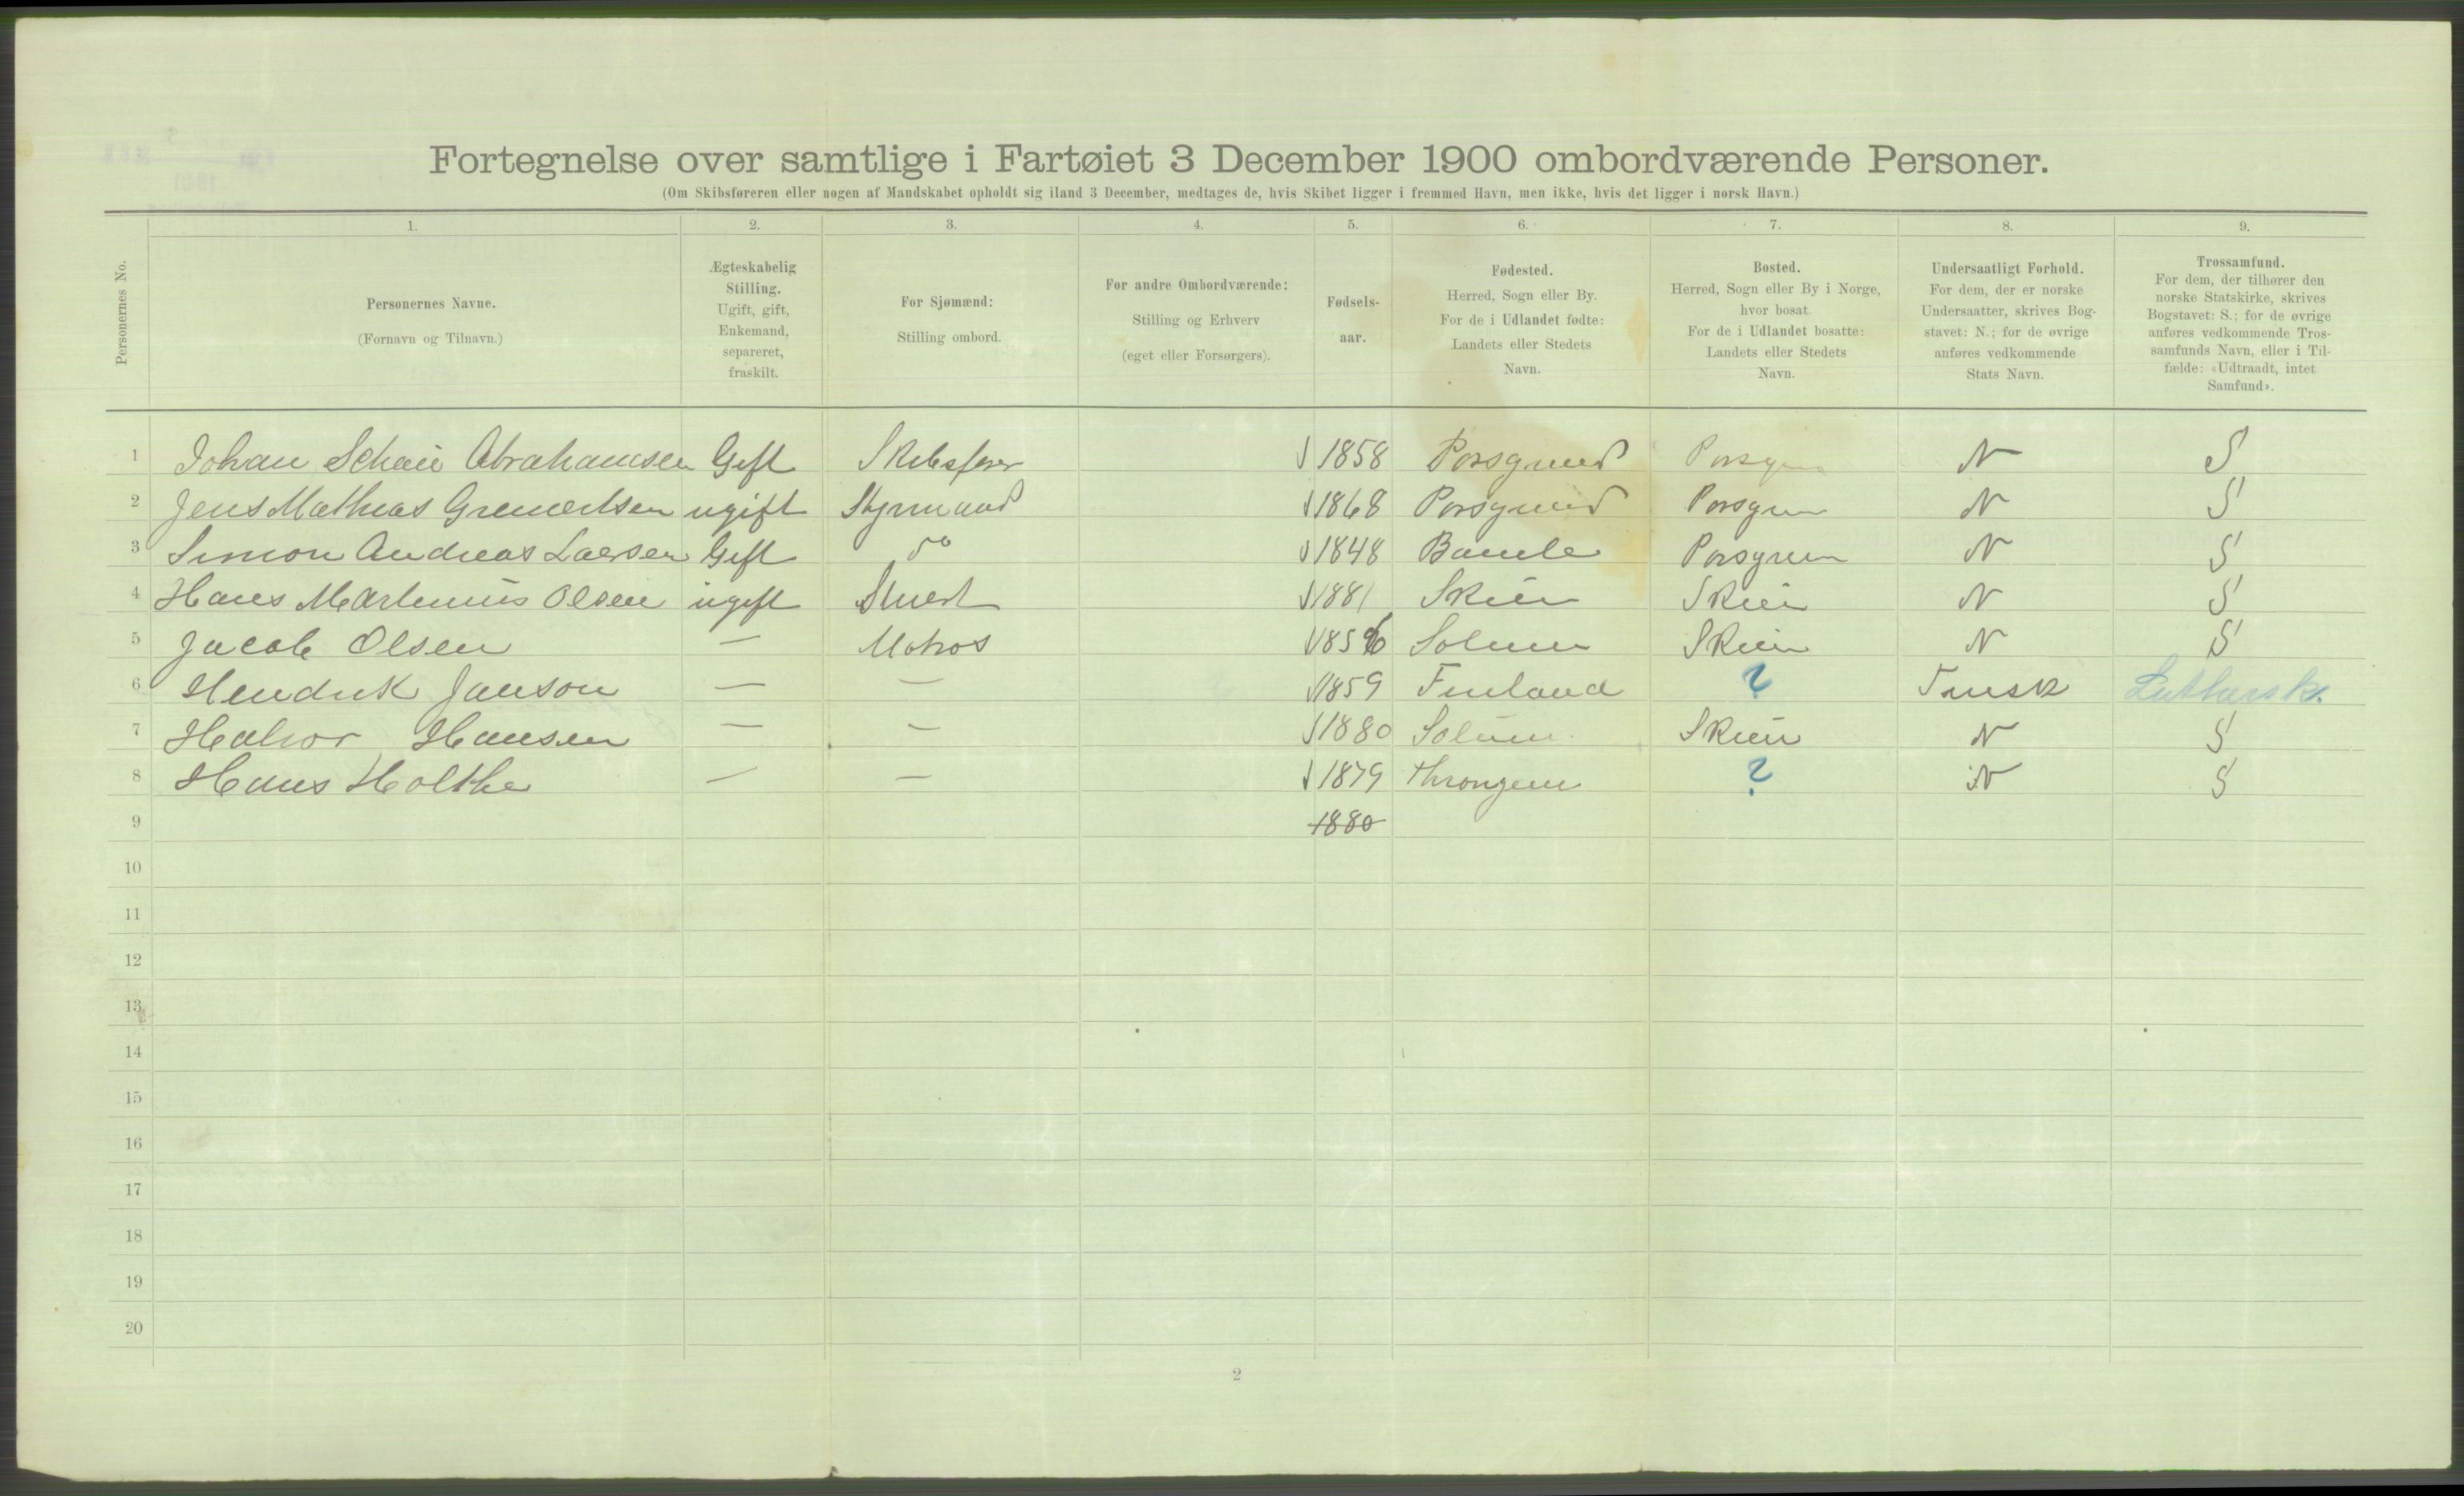 Fortegnelse over samtlige i Fartøiet 3 December 1900 ombordværende Personer.
(Om Skibsføreren eller nogen af Mandskabet opholdt sig iland 3 December, medtages de, hvis Skibet ligger i fremmed Havn, men ikke, hvis det ligger i norsk Havn.)
Personernes No.
1.
Personernes Navne.
(Fornavn og Tilnavn.)
2.
Ægteskabelig
Stilling.
Ugift, gift,
Enkemand,
separeret,
fraskilt.
3.
For Sjømænd:
Stilling ombord.
4.
For andre Ombordværende:
Stilling og Erhverv
(eget eller Forsørgers).
5.
Fødsels-
aar.
6.
Fødested.
Herred, Sogn eller By.
For de i Udlandet fødte:
Landets eller Stedets
Navn.
7.
Bosted.
Herred, Sogn eller By i Norge,
hvor bosat.
For de i Udlandet bosatte:
Landets eller Stedets
Navn.
8.
Undersaatligt Forhold.
For dem, der er norske
Undersaatter, skrives Bog-
stavet: N.; for de øvrige
anføres vedkommende
Stats Navn.
9.
Trossamfund.
For dem, der tilhører den
norske Statskirke, skrives
Bogstavet: S.; for de øvrige
anføres vedkommende Tros-
samfunds Navn, eller i Til-
fælde: «Udtraadt, intet
Samfund».
1 Johan Abrahamsen Gift Skibsfører 1858 Porsgrund Porsgrun N S
2 Jens Mathias ugift Styrmand 1868 Porsgrund Porsgrun N S
3 Simon Andreas Larsen Gift do 1848 Bamle Porsgrun N S
4 Hans Martinius Olsen ugift Stuert 1881 Skien Skien N S
5 Jacob Olsen — Matros 1856 Solum Skien N S
6 Hendrik Janson — — 1859 Finland ? Finsk Luthersk.
7 Halvor Hansen — — 1880 Solum Skien N S
8 Hans Holthe — — 1879 ? N S
9 1880
10
11
12
13
14
15
16
17
18
19
20
2